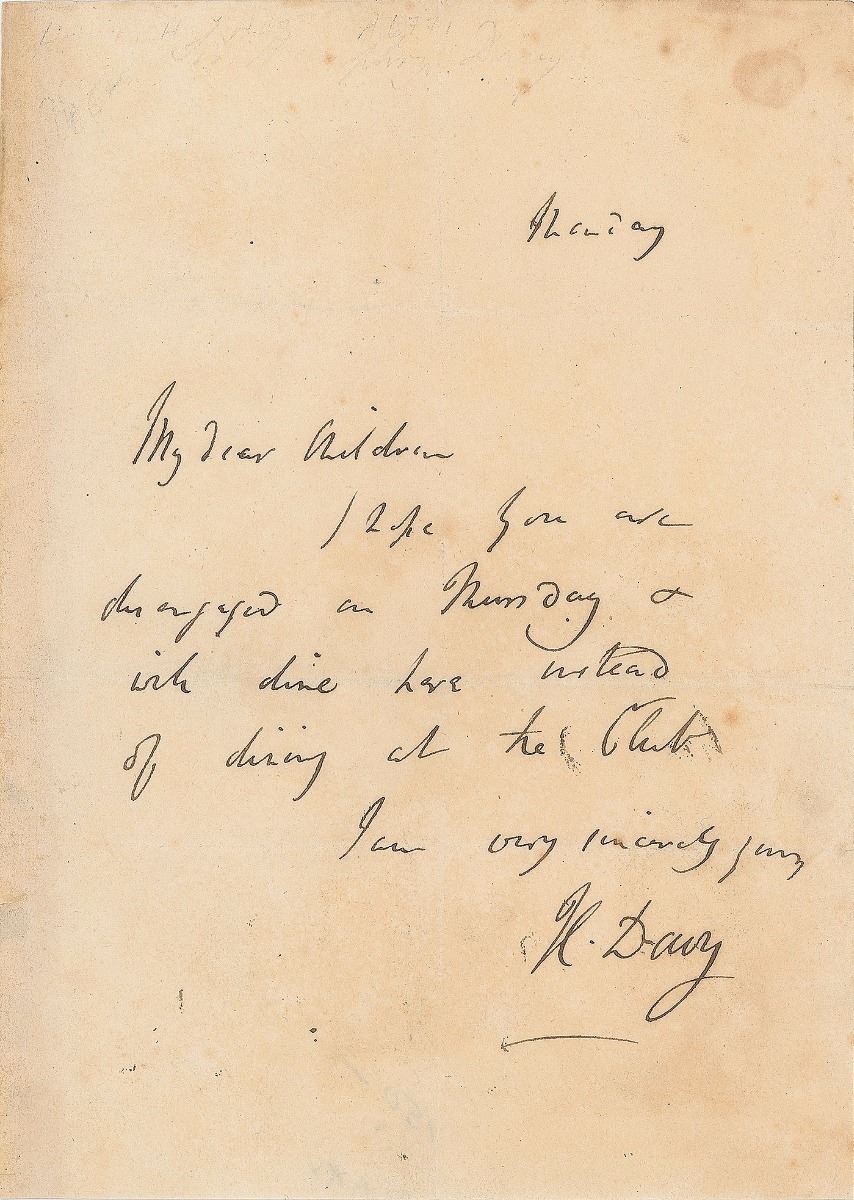 Monday
My dear Children
I hope you are
disengaged on Thursday &
will dine here instead
of dining at the Club
I am very sincerely yours
H. Davy